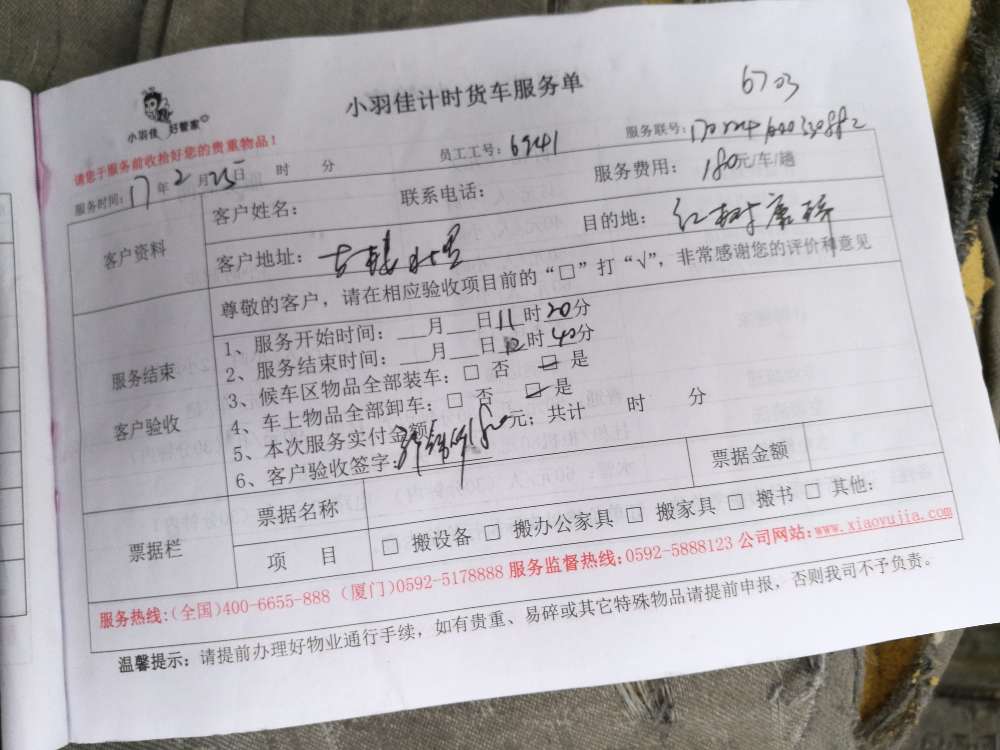 小羽佳 好管家
小羽佳计时货车服务单
6703
请您于服务前收拾好您的贵重物品！
服务时间：17年2月25日 时 分 员工工号：6941 服务联号：
客户资料
客户姓名： 联系电话： 服务费用：180元/车/趟
客户地址： 目的地：红树康桥
服务结束
客户验收
尊敬的客户，请在相应验收项目前的“□”打“√”，非常感谢您的评价和意见
1、服务开始时间：___月___日11时20分
2、服务结束时间：___月___日12时40分
3、候车区物品全部装车：□ 否 ☑ 是
4、车上物品全部卸车：□ 否 ☑ 是
5、本次服务实付金额180元；共计 时 分
6、客户验收签字：
票据栏
票据名称 票据金额
项 目 □ 搬设备 □ 搬办公家具 □ 搬家具 □ 搬书 □ 其他：
服务热线：(全国)400-6655-888 (厦门)0592-5178888 服务监督热线：0592-5888123 公司网站：www.xiaoyujia.com
温馨提示：请提前办理好物业通行手续，如有贵重、易碎或其它特殊物品请提前申报，否则我司不予负责。